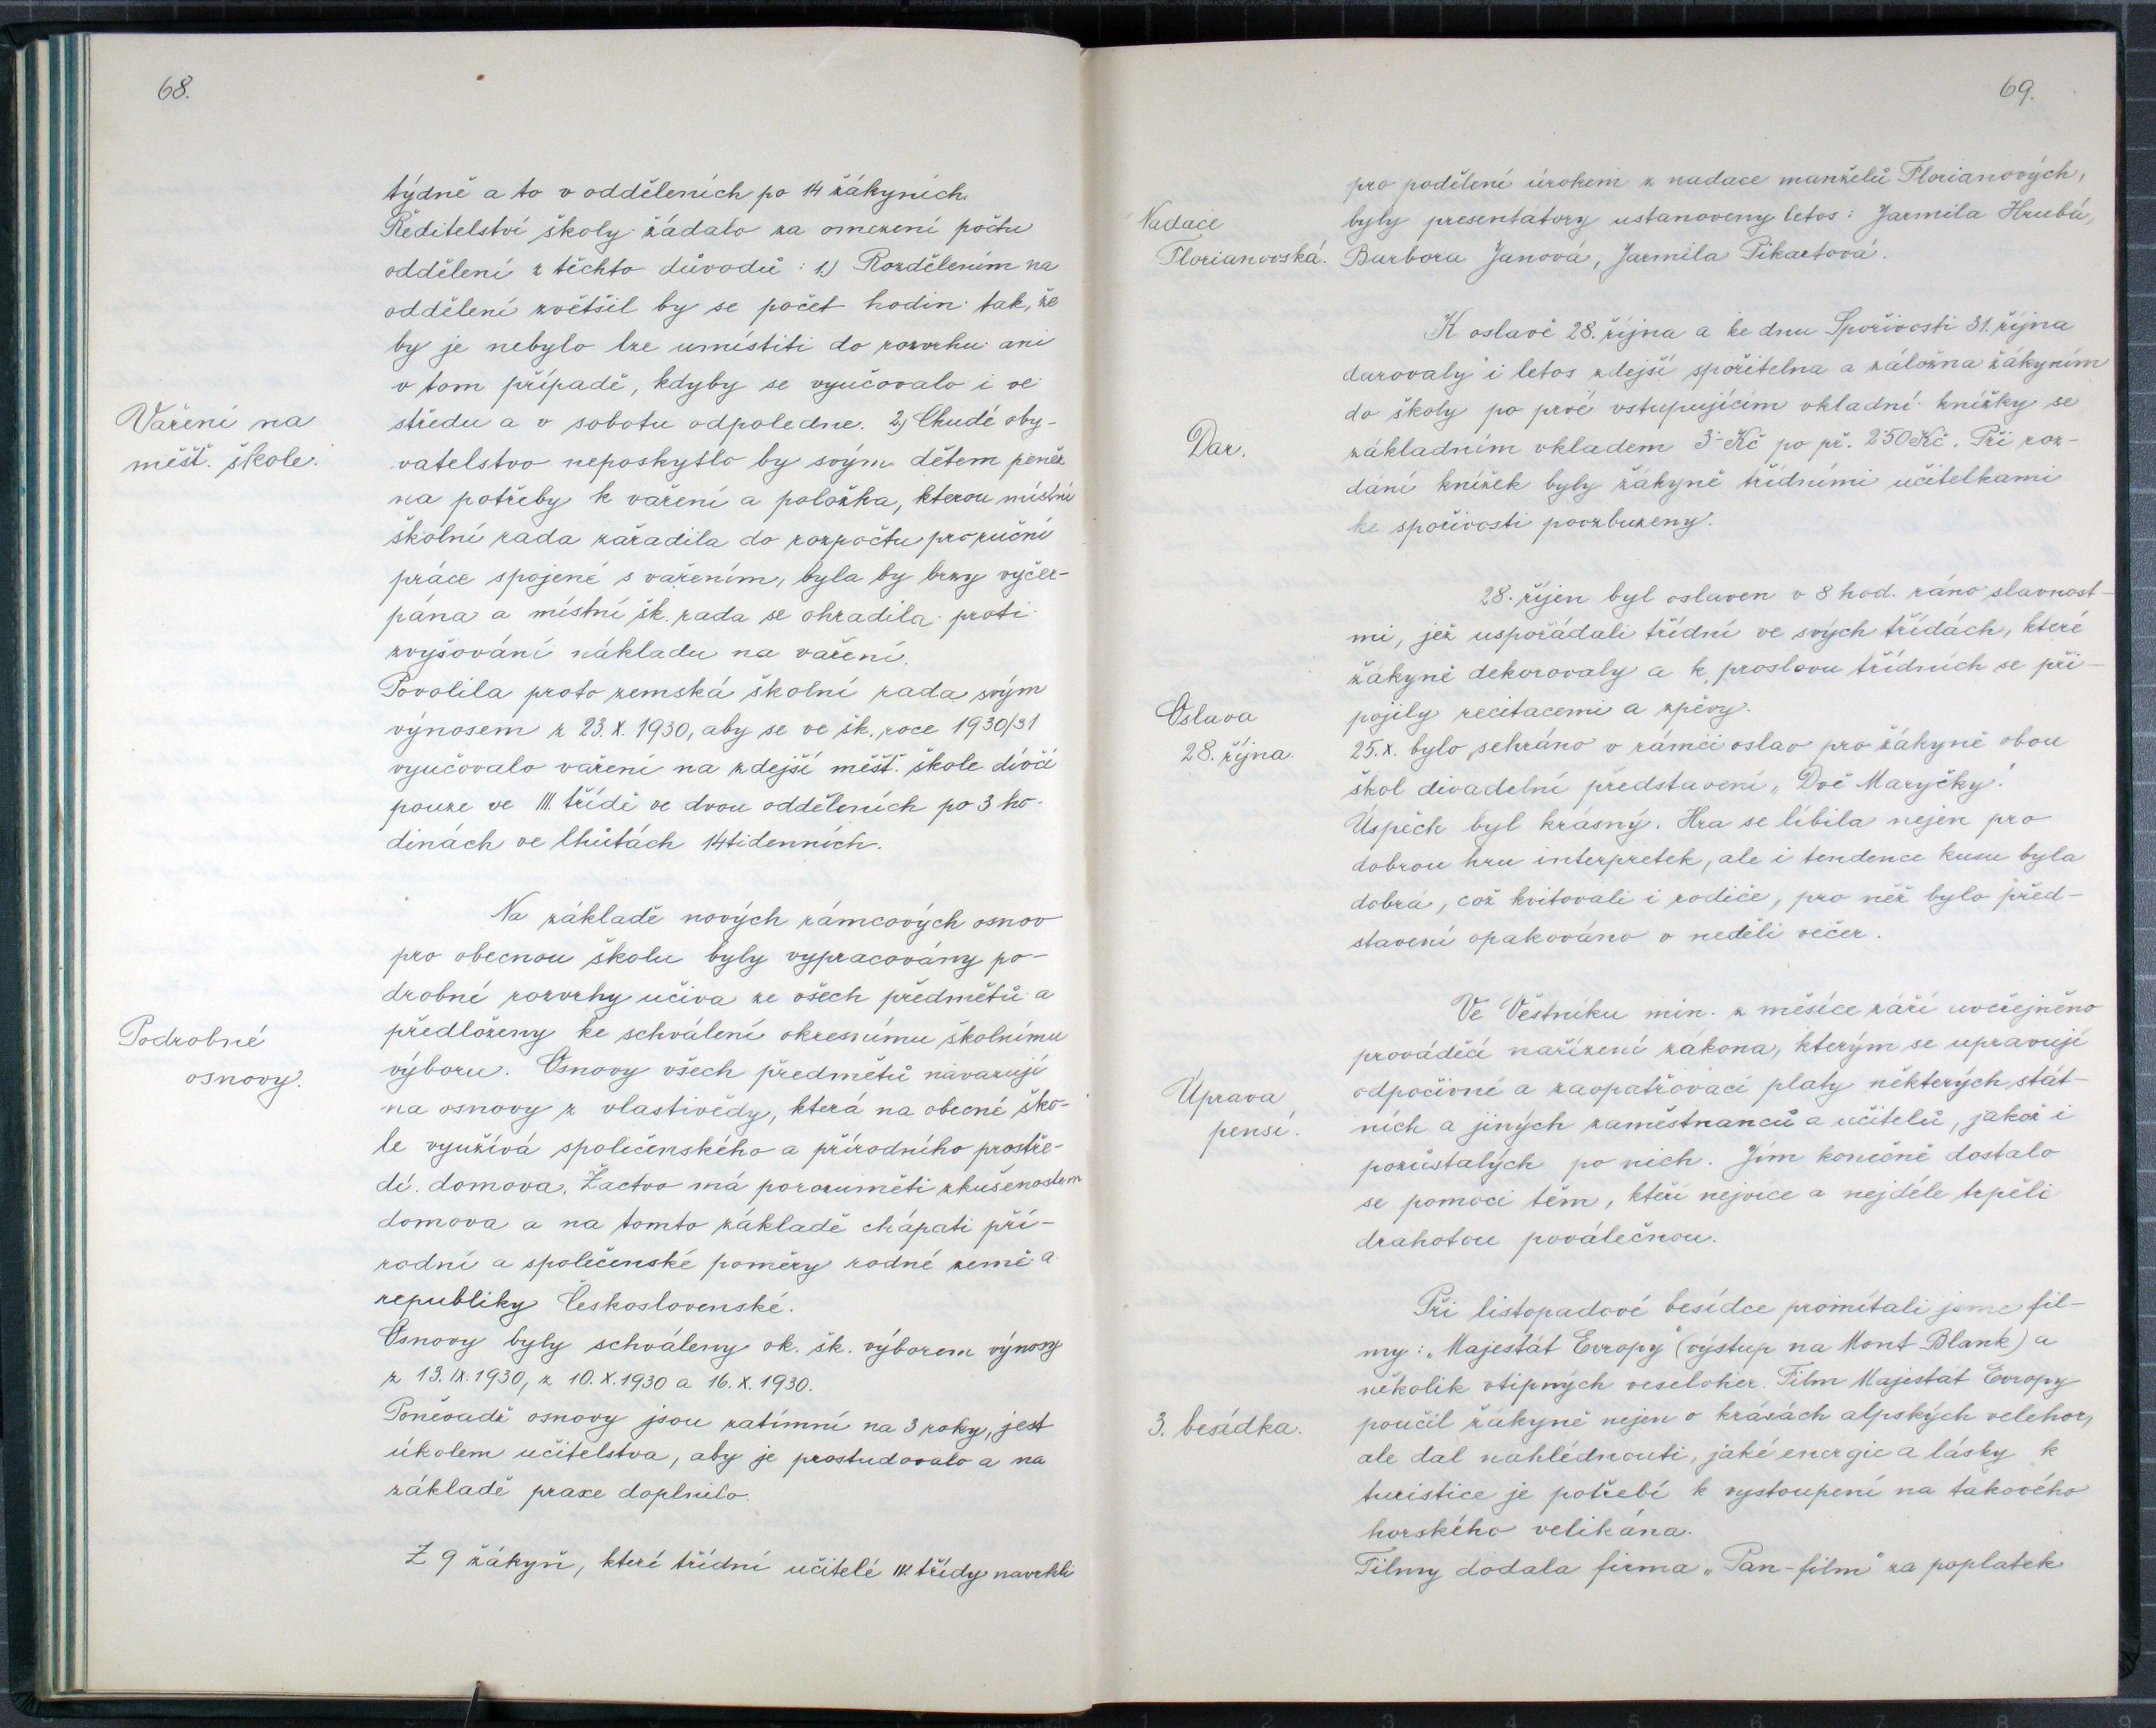 68.
týdně a to v odděleních po 14 žákyních.
Ředitelství školy žádalo za omezení počtu
oddělení z těchto důvodů: 1.) Rozdělením na
oddělení zvětšil by se počet hodin tak, že
by je nebylo lze umístiti do rozvrhu ani
v tom případě, kdyby se vyučovalo i ve
Vaření na
měšť. škole.
středu a v sobotu odpoledne. 2.) Chudé oby-
vatelstvo neposkytlo by svým dětem peněz
na potřeby k vaření a položka, kterou místní
školní rada zařadila do rozpočtu pro ruční
práce spojené s vařením, byla by brzy vyčer-
pána a místní šk. rada se ohradila proti
zvyšování nákladu na vaření.
Povolila proto zemská školní rada svým
výnosem z 23. X. 1930, aby se ve šk. roce 1930/31
vyučovalo vaření na zdejší měšť. škole dívčí
pouze ve III. třídě ve dvou odděleních po 3 ho-
dinách ve lhůtách 14tidenních.
Na základě nových rámcových osnov
pro obecnou školu byly vypracovány po-
drobné rozvrhy učiva ze všech předmětů a
Podrobné
osnovy.
předloženy ke schválení okresnímu školnímu
výboru. Osnovy všech předmětů navazují
na osnovy z vlastivědy, která na obecné ško-
le využívá společenského a přírodního prostře-
dí domova. Žactvo má porozuměti zkušenostem
domova a na tomto základě chápati pří-
rodní a společenské poměry rodné země a
republiky Československé.
Osnovy byly schváleny ok. šk. výborem výnosy
z 13. IX. 1930, z 10. X. 1930 a 16. X. 1930.
Poněvadž osnovy jsou zatímní na 3 roky, jest
úkolem učitelstva, aby je prostudovalo a na
základě praxe doplnilo.
Z 9 žákyň, které třídní učitelé III. třídy navrhli
69.
pro podělení úrokem z nadace manželů Florianových,
Nadace
Florianovská.
byly presentátory ustanoveny letos: Jarmila Hrubá,
Barbora Janová, Jarmila Pikartová.
K oslavě 28. října a ke dnu Spořivosti 31. října
darovaly i letos zdejší spořitelna a záložna žákyním
do školy po prvé vstupujícím vkladní knížky se
Dar.
základním vkladem 3·- Kč po př. 2·50 Kč. Při roz-
dání knížek byly žákyně třídními učitelkami
ke spořivosti povzbuzeny.
28. říjen byl oslaven v 8 hod. ráno slavnost-
mi, jež uspořádali třídní ve svých třídách, které
žákyně dekorovaly a k proslovu třídních se při-
Oslava
28. října.
pojily recitacemi a zpěvy.
25. X. bylo sehráno v rámci oslav pro žákyně obou
škol divadelní představení „Dvě Maryčky".
Úspěch byl krásný. Hra se líbila nejen pro
dobrou hru interpretek, ale i tendence kusu byla
dobrá, což kvitovali i rodiče, pro něž bylo před-
stavení opakováno v neděli večer.
Ve Věstníku min. z měsíce září uveřejněno
prováděcí nařízení zákona, kterým se upravují
Úprava
pensí.
odpočivné a zaopatřovací platy některých stát-
ních a jiných zaměstnanců a učitelů, jakož i
pozůstalých po nich. Jím konečně dostalo
se pomoci těm, kteří nejvíce a nejdéle trpěli
drahotou poválečnou.
Při listopadové besídce promítali jsme fil-
my: „Majestát Evropy" (výstup na Mont Blank) a
několik vtipných veseloher. Film Majestát Evropy
3. besídka.
poučil žákyně nejen o krásách alpských velehor,
ale dal nahlédnouti, jaké energie a lásky k
turistice je potřebí k vystoupení na takového
horského velikána.
Filmy dodala firma „Pan-film" za poplatek